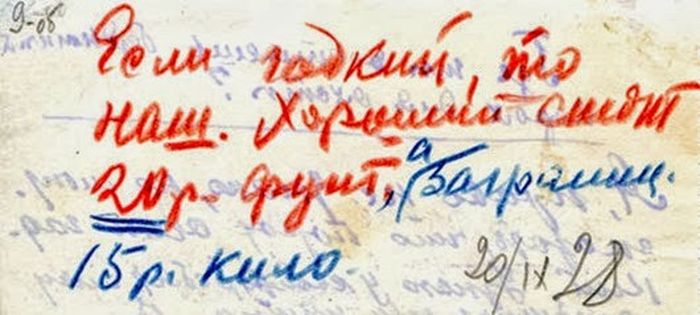 9-об
Если гадкий, то
наш. Хороший стоит
20р. фунт, а Заграниц.
15р. кило.
20/IX 28